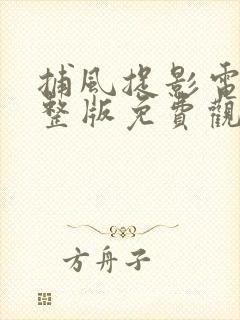 捕風捉影電
整版免費觀
方舟子